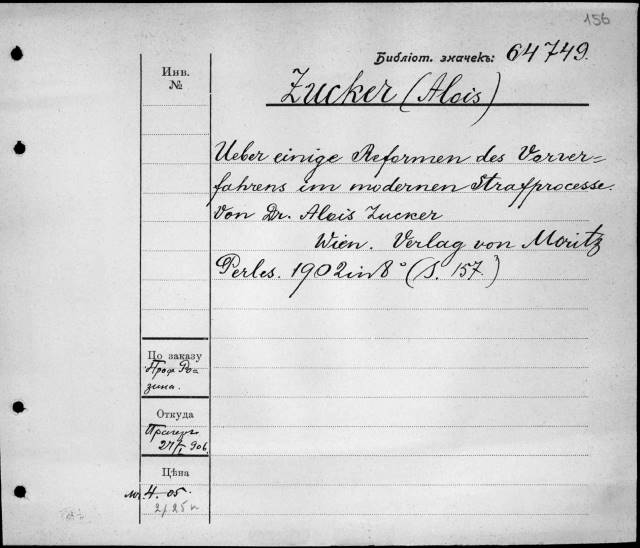 156
Библіот. значекъ: 64749.
Инв.
№
Zucker (Alois)
Ueber einige Reformen des Vorver=
fahrens im modernen Strafprocesse.
Von Dr. Alois Zucker
Wien. Verlag von Moritz
Perles. 1902 in 8° (S. 157.)
По заказу
Проф. Ро=
зина.
Откуда
27/I 906.
Цѣна
M. 4.-05.
2 р. 25 к